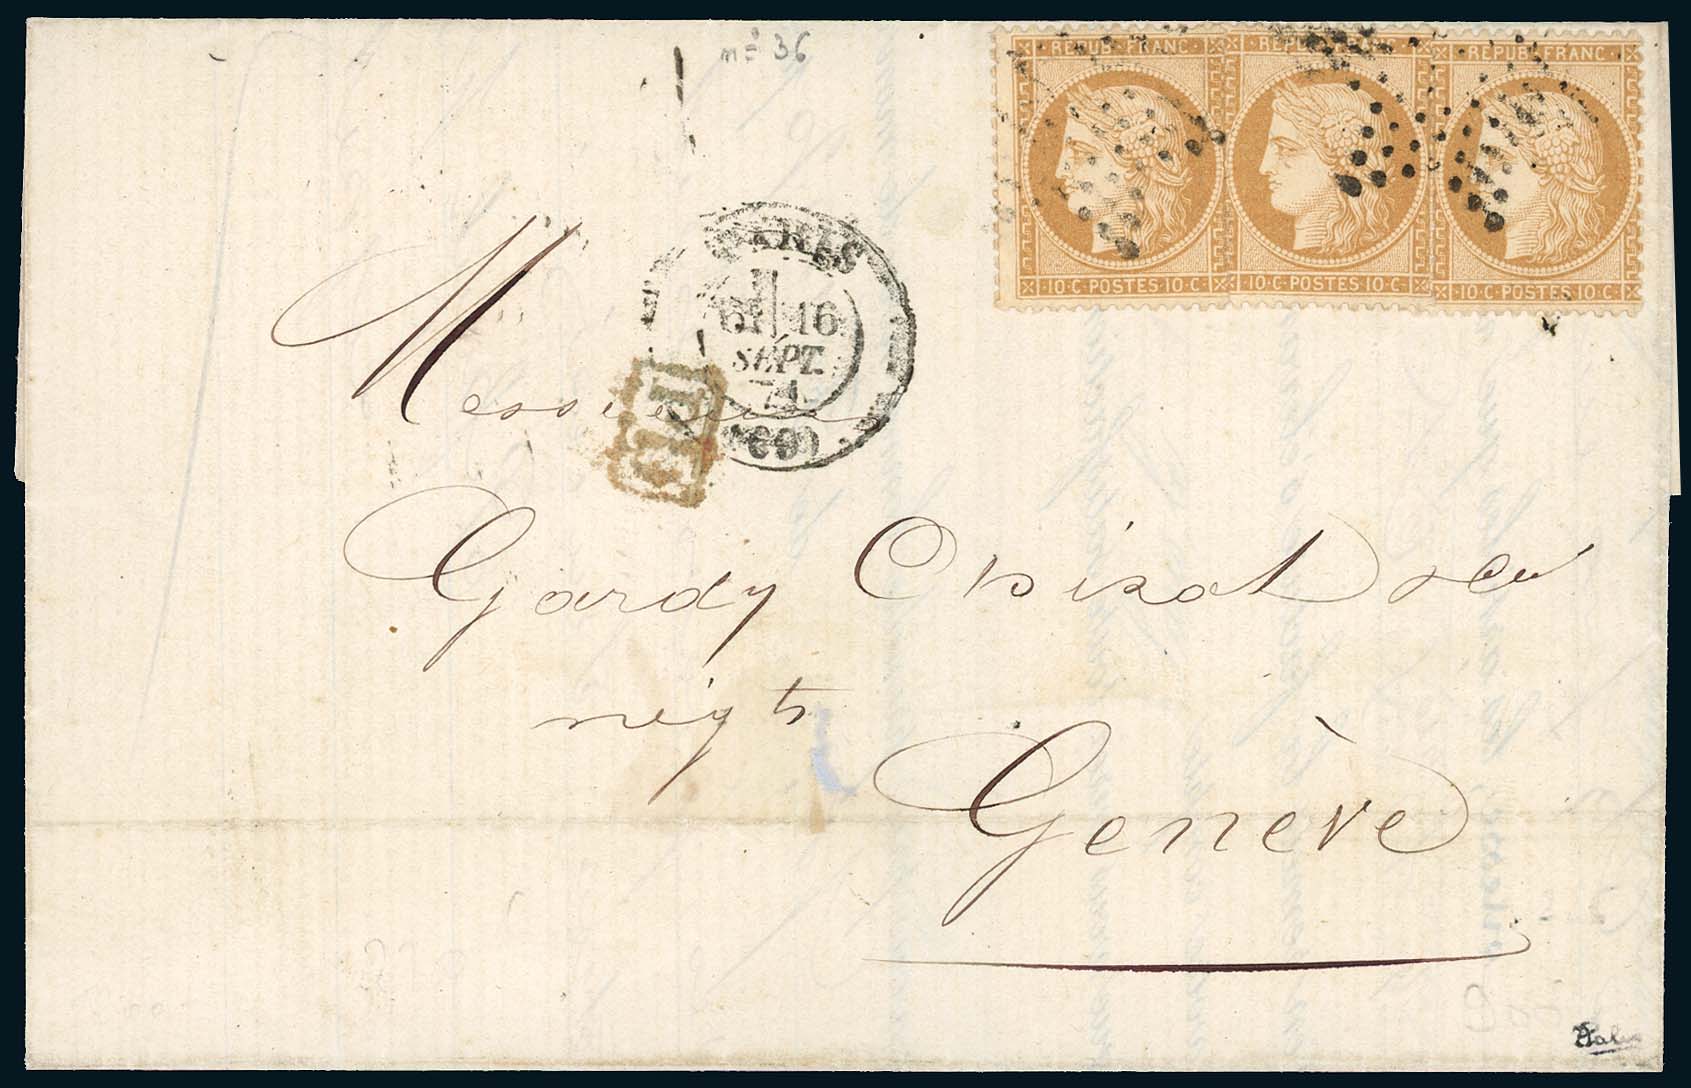 nº 36
REPUB · FRANC · REPUB · FRANC · REPUB · FRANC ·
10 · C · POSTES 10 · C · 10 · C · POSTES 10 · C · 10 · C · POSTES 10 · C ·
PARIS
16
SEPT.
71
(60)
P.D.
Messieurs
Gardy
négts
Genève